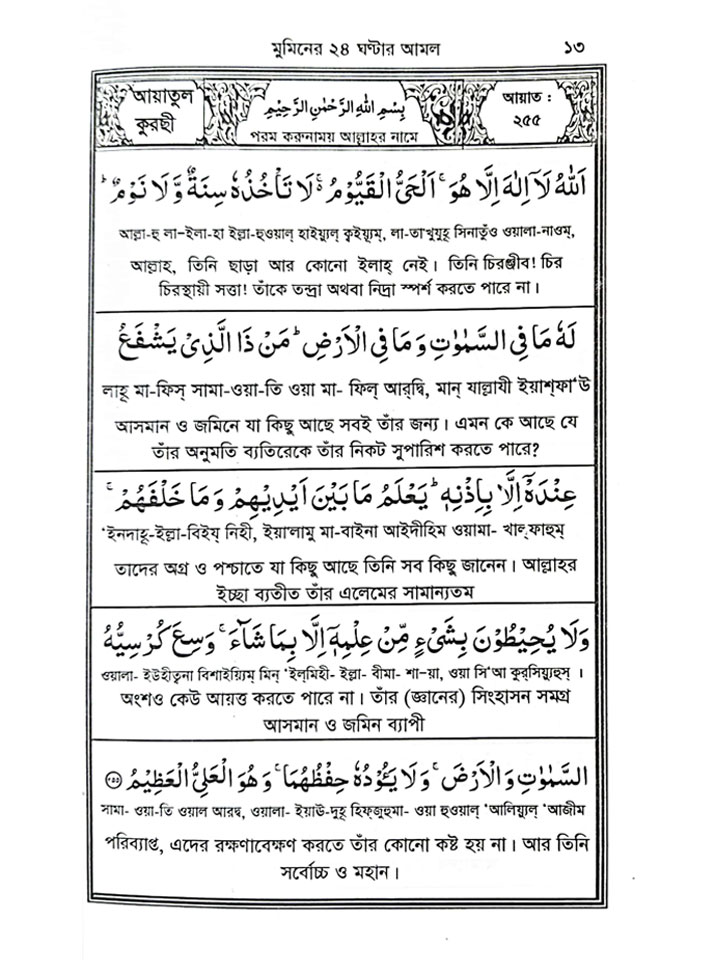 মুমিনের ২৪ ঘণ্টার আমল ১৩
আয়াতুল কুরছী
بِسْمِ اللّٰهِ الرَّحْمٰنِ الرَّحِيْمِ
পরম করুনাময় আল্লাহর নামে
আয়াত : ২৫৫
اَللّٰهُ لَاۤ اِلٰهَ اِلَّا هُوَ ۚ اَلْحَىُّ الْقَيُّوْمُ ۚ لَا تَاْخُذُهٗ سِنَةٌ وَّلَا نَوْمٌ ؕ
আল্লা-হু লা–ইলা-হা ইল্লা-হুওয়াল্ হাইয়্যুল্ ক্বইয়্যুম্, লা-তা'খুযুহূ সিনাতুঁও ওয়ালা-নাওম্,
আল্লাহ, তিনি ছাড়া আর কোনো ইলাহ্ নেই। তিনি চিরঞ্জীব! চির
চিরস্থায়ী সত্তা! তাঁকে তন্দ্রা অথবা নিদ্রা স্পর্শ করতে পারে না।
لَهٗ مَا فِى السَّمٰوٰتِ وَمَا فِى الْاَرْضِ ؕ مَنْ ذَا الَّذِىْ يَشْفَعُ
লাহূ মা-ফিস্ সামা-ওয়া-তি ওয়া মা- ফিল্ আর্‌দ্বি, মান্ যাল্লাযী ইয়াশ্‌ফা'উ
আসমান ও জমিনে যা কিছু আছে সবই তাঁর জন্য। এমন কে আছে যে
তাঁর অনুমতি ব্যতিরেকে তাঁর নিকট সুপারিশ করতে পারে?
عِنْدَهٗۤ اِلَّا بِاِذْنِهٖ ؕ يَعْلَمُ مَا بَيْنَ اَيْدِيْهِمْ وَمَا خَلْفَهُمْ ۚ
'ইনদাহূ-ইল্লা-বিইয্ নিহী, ইয়া'লামু মা-বাইনা আইদীহিম ওয়ামা- খাল্‌ফাহুম্
তাদের অগ্র ও পশ্চাতে যা কিছু আছে তিনি সব কিছু জানেন। আল্লাহর
ইচ্ছা ব্যতীত তাঁর এলেমের সামান্যতম
وَلَا يُحِيْطُوْنَ بِشَىْءٍ مِّنْ عِلْمِهٖۤ اِلَّا بِمَا شَآءَ ۚ وَسِعَ كُرْسِيُّهُ
ওয়ালা- ইউহীতূনা বিশাইয়্যিম্ মিন্ 'ইল্‌মিহী- ইল্লা- বীমা- শা-য়া, ওয়া সি'আ কুর্‌সিয়্যুহুস্ ।
অংশও কেউ আয়ত্ত করতে পারে না। তাঁর (জ্ঞানের) সিংহাসন সমগ্র
আসমান ও জমিন ব্যাপী
السَّمٰوٰتِ وَالْاَرْضَ ۚ وَلَا يَـُٔوْدُهٗ حِفْظُهُمَا ۚ وَهُوَ الْعَلِىُّ الْعَظِيْمُ ﴿۲۵۵﴾
সামা- ওয়া-তি ওয়াল আরদ্ব, ওয়ালা- ইয়াঊ-দুহূ হিফ্‌জুহুমা- ওয়া হুওয়াল্ 'আলিয়্যুল্ 'আজীম
পরিব্যাপ্ত, এদের রক্ষণাবেক্ষণ করতে তাঁর কোনো কষ্ট হয় না। আর তিনি
সর্বোচ্চ ও মহান।